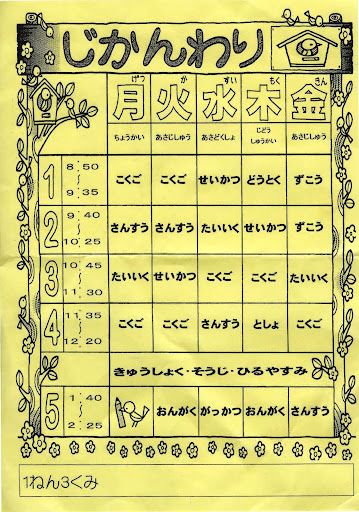 じかんわり
げつ か すい もく きん
月 火 水 木 金
ちょうかい あさじしゅう あさどくしょ じどうしゅうかい あさじしゅう
1 8:50〜9:35 こくご こくご せいかつ どうとく ずこう
2 9:40〜10:25 さんすう さんすう たいいく せいかつ ずこう
3 10:45〜11:30 たいいく せいかつ こくご こくご たいいく
4 11:35〜12:20 こくご こくご さんすう としょ こくご
きゅうしょく・そうじ・ひるやすみ
5 1:40〜2:25 おんがく がっかつ おんがく さんすう
1ねん3くみ